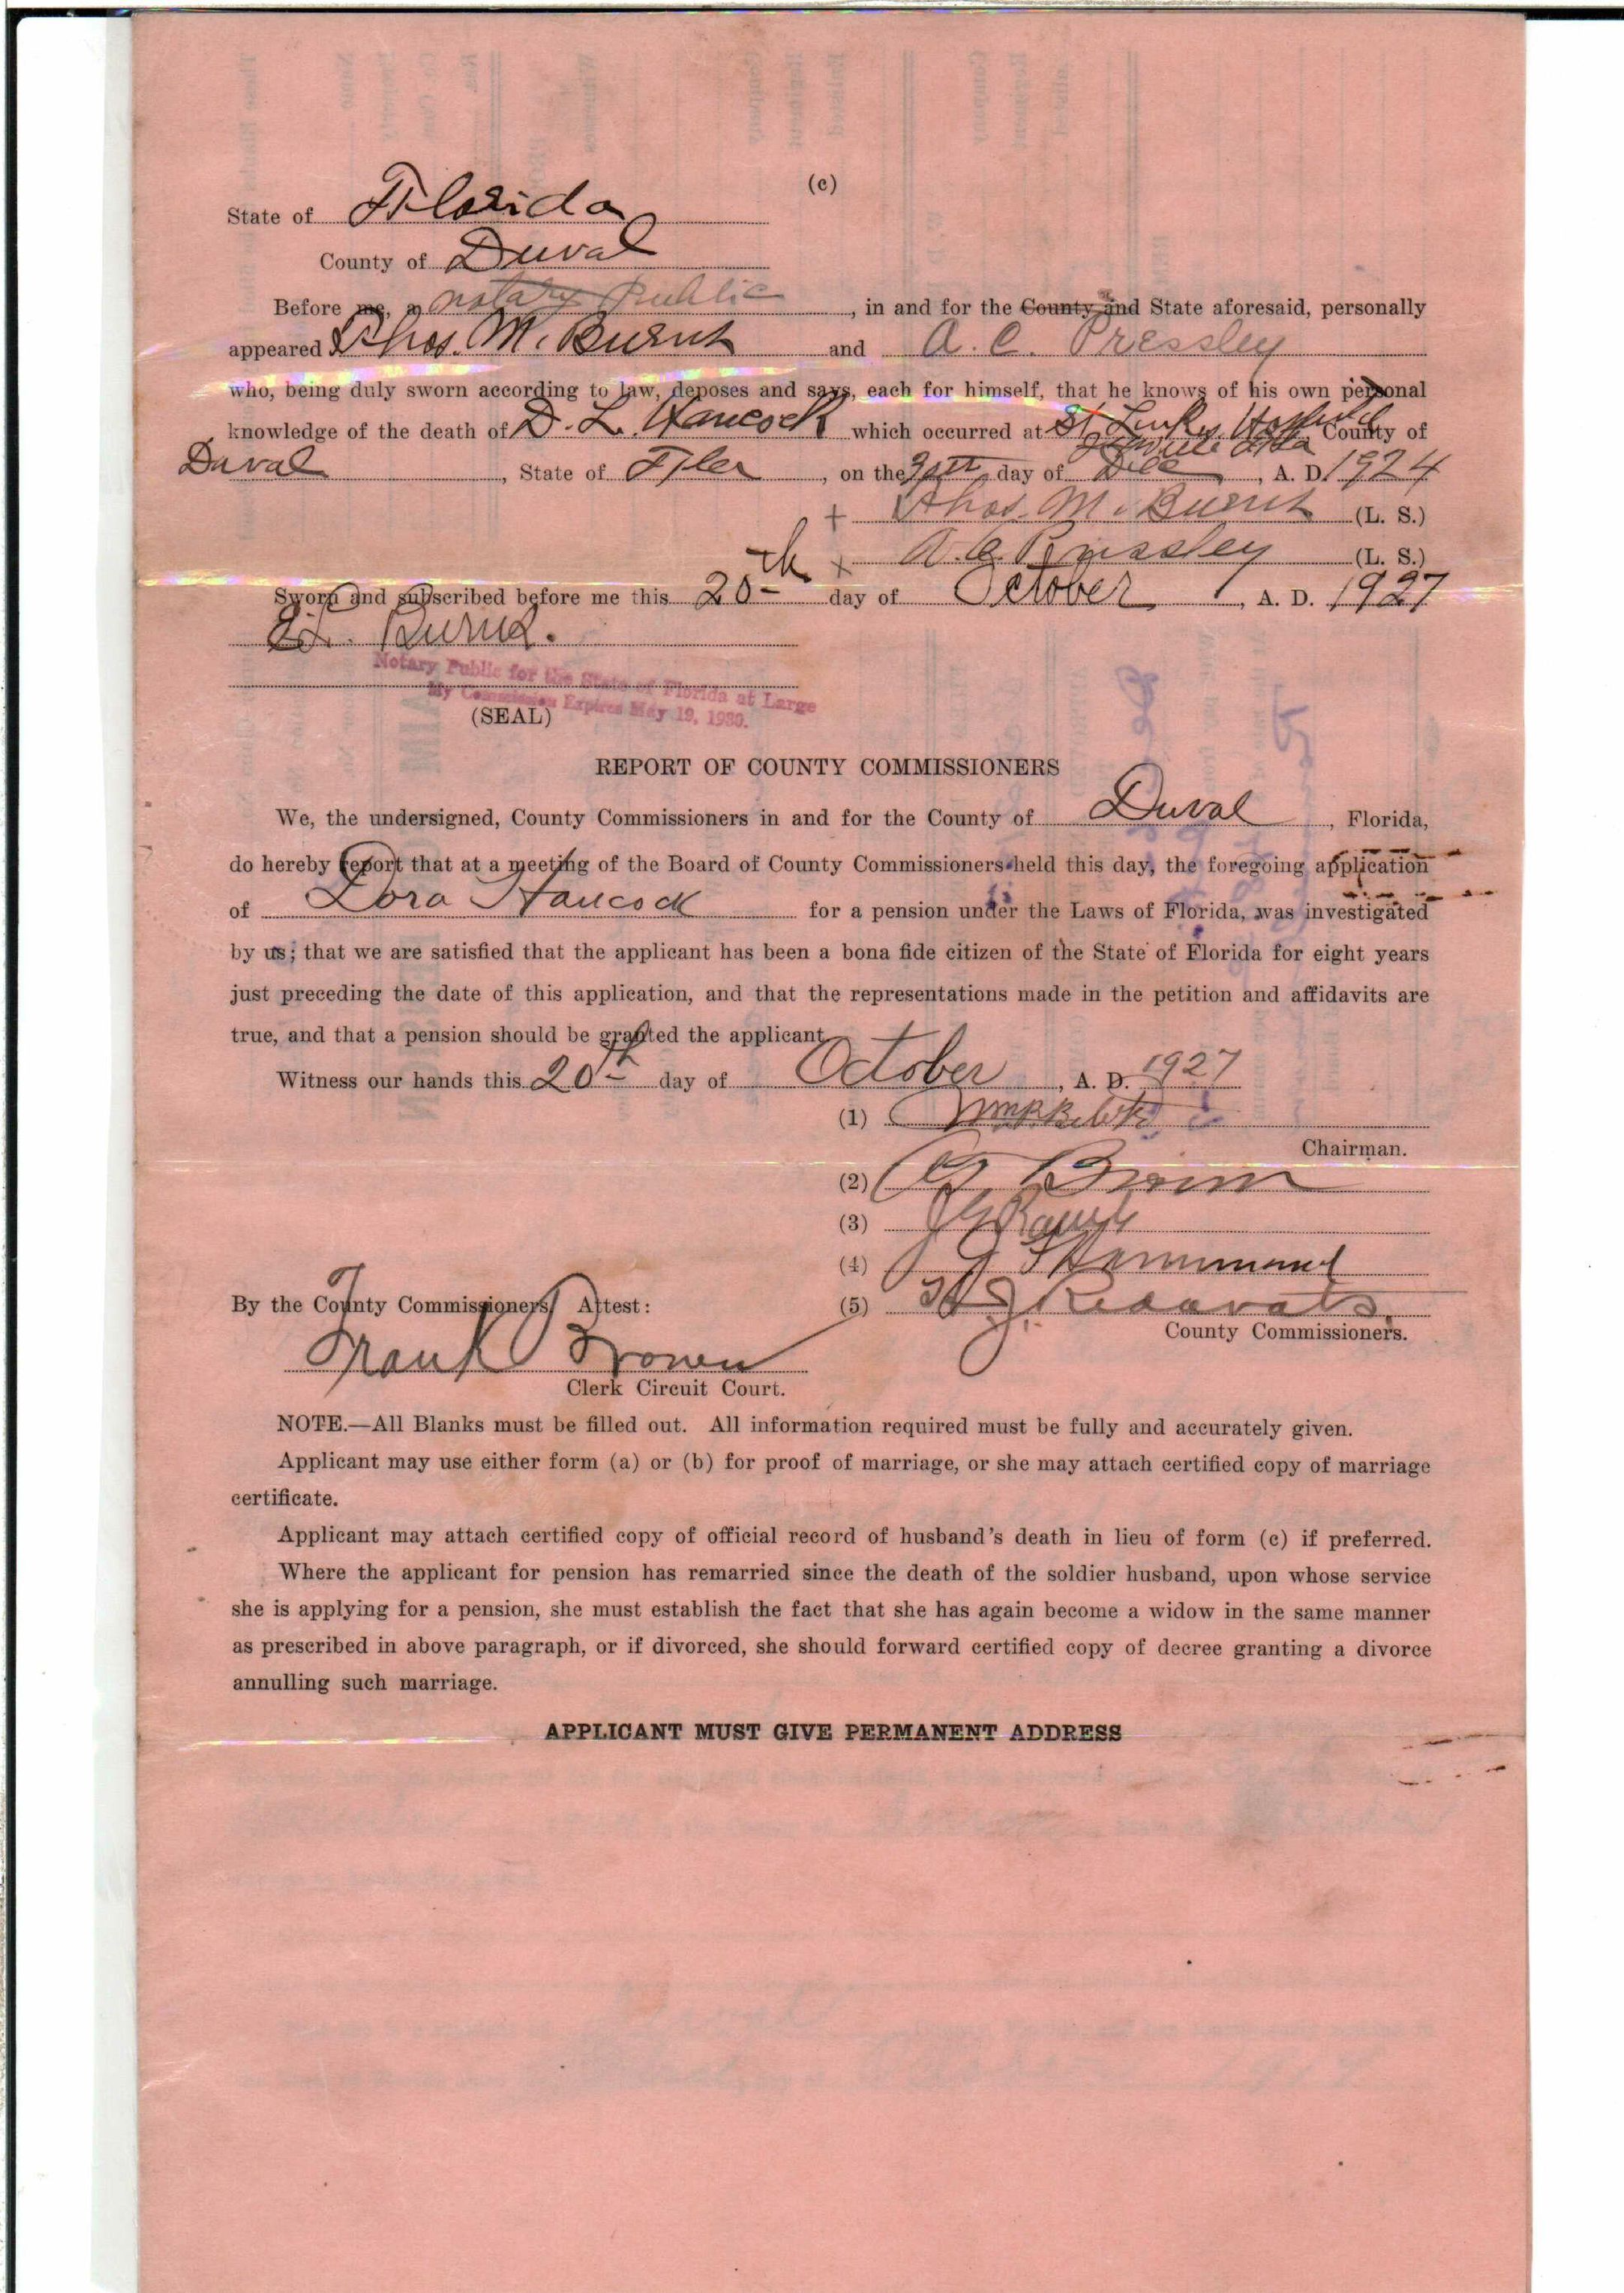 (c)
State of Florida
County of Duval
Before me, a notary Public, in and for the County and State aforesaid, personally
appeared Thos. M. Burns and A. C. Pressley
who, being duly sworn according to law, deposes and says, each for himself, that he knows of his own personal
knowledge of the death of D. L. Hancock which occurred at St Lukes Hospital County of
Duval, State of Fla, on the day of Dec, A. D. 1924
+ Thos. M. Burns (L. S.)
x A. C. Pressley (L. S.)
Sworn and subscribed before me this 20th day of October, A. D. 1927
Notary Public for the State of Florida at Large
My Commission Expires May 19, 1930.
(SEAL)
REPORT OF COUNTY COMMISSIONERS
We, the undersigned, County Commissioners in and for the County of Duval, Florida,
do hereby report that at a meeting of the Board of County Commissioners held this day, the foregoing application
of Dora Hancock for a pension under the Laws of Florida, was investigated
by us; that we are satisfied that the applicant has been a bona fide citizen of the State of Florida for eight years
just preceding the date of this application, and that the representations made in the petition and affidavits are
true, and that a pension should be granted the applicant.
Witness our hands this 20th day of October, A. D. 1927
(1)
Chairman.
(2)
(3)
(4) Hammond
(5)
By the County Commissioners, Attest:
County Commissioners.
Frank Brown
Clerk Circuit Court.
NOTE.—All Blanks must be filled out. All information required must be fully and accurately given.
Applicant may use either form (a) or (b) for proof of marriage, or she may attach certified copy of marriage
certificate.
Applicant may attach certified copy of official record of husband's death in lieu of form (c) if preferred.
Where the applicant for pension has remarried since the death of the soldier husband, upon whose service
she is applying for a pension, she must establish the fact that she has again become a widow in the same manner
as prescribed in above paragraph, or if divorced, she should forward certified copy of decree granting a divorce
annulling such marriage.
APPLICANT MUST GIVE PERMANENT ADDRESS